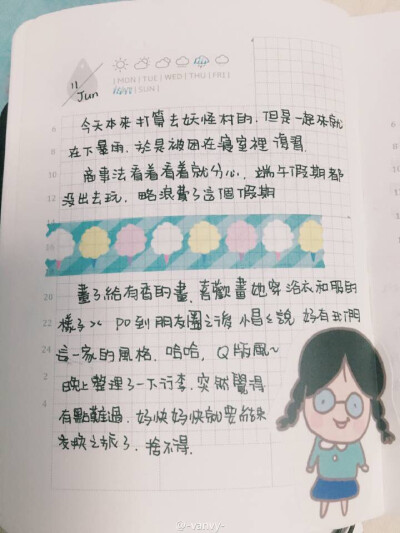 11
Jun
| MON / TUE | WED | THU | FRI |
| SUN |
今天本來打算去妖怪村的,但是一起來就
在下暴雨,於是被困在寢室裡複習.
商事法看着看着就分心,端午假期都
沒出去玩,略浪費了這個假期
畫了給有香的畫,喜歡畫她穿浴衣和服的
樣子>< PO到朋友圈之後 說 好有我們
這一家的風格,哈哈,Q版風~
晚上整理了一下行李,突然覺得
有點難過,好快好快就要結束
交換之旅了,捨不得.
6
8
10
12
14
16
20
22
24
2
4
@-vanvy-